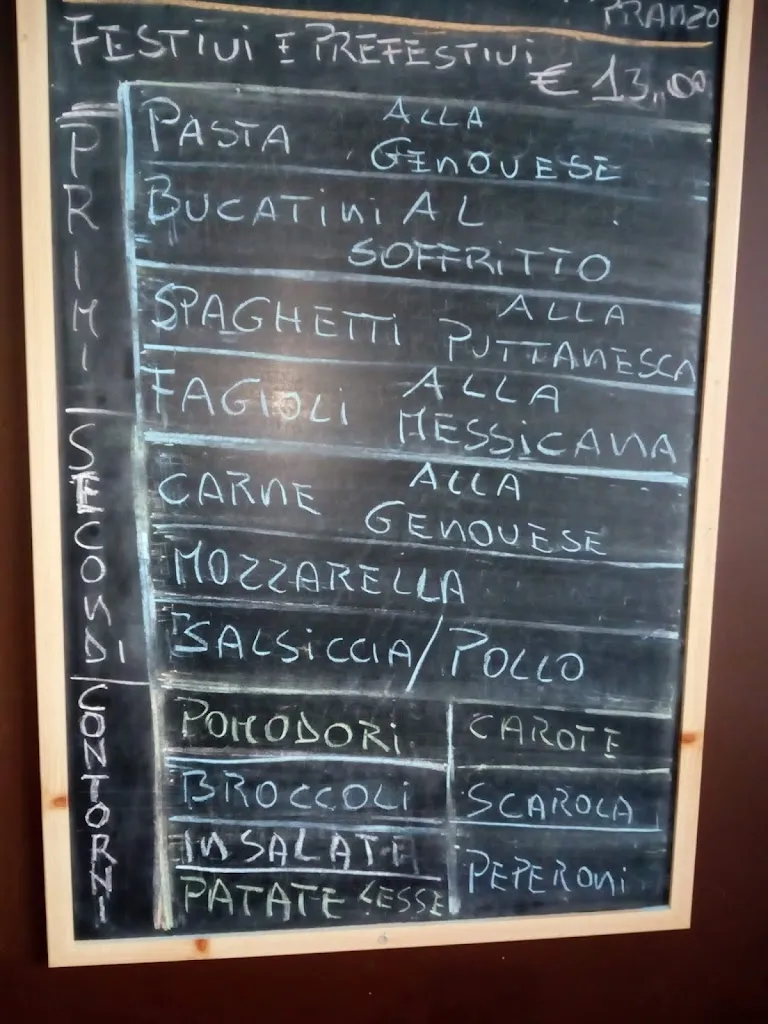 PRANZO
FESTIVI E PREFESTIVI
€ 13,00
PRIMI
PASTA ALLA
GENOVESE
BUCATINI AL
SOFFRITTO
SPAGHETTI ALLA
PUTTANESCA
FAGIOLI ALLA
MESSICANA
SECONDI
CARNE ALLA
GENOVESE
MOZZARELLA
BALSICCIA/POLLO
CONTORNI
POMODORI CAROTE
BROCCOLI SCAROLA
INSALATE PEPERONI
PATATE LESSE